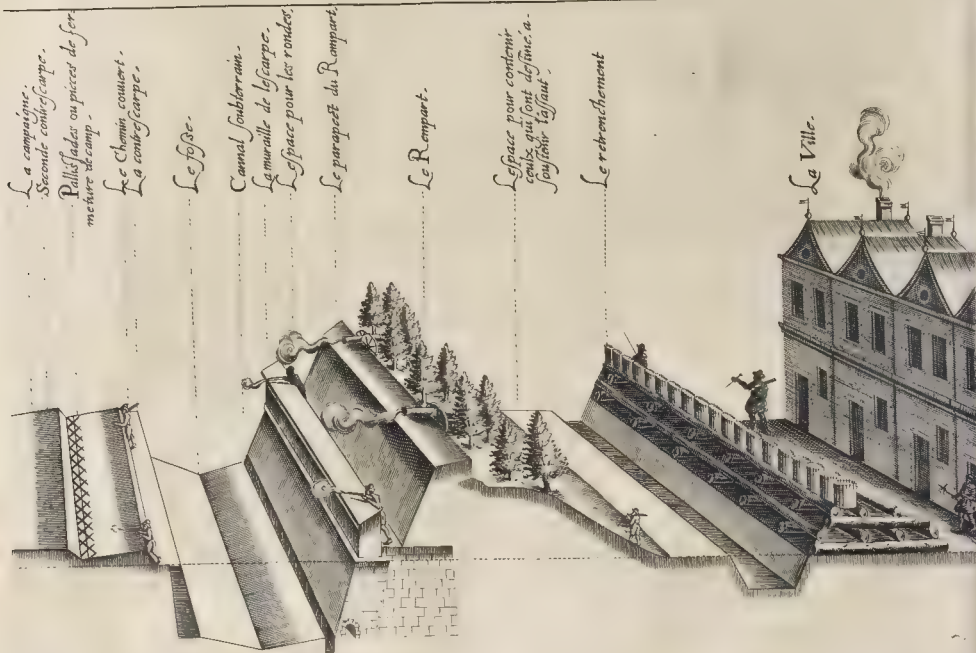 La campaigne.
Seconde contreſcarpe.
Palliſſades ou pieces de fer-
meture de camp.
Le Chemin couuert.
La contreſcarpe.
Le foſſe.
Cannal ſoubterrain.
La muraille de leſcarpe.
Leſpace pour les rondes.
Le parapect du Rampart.
Le Rempart.
Leſpace pour contenir
ceulx qui ſont deſtiné, a
ſouſtenir laſſaut.
Le retrenchement
La Ville.